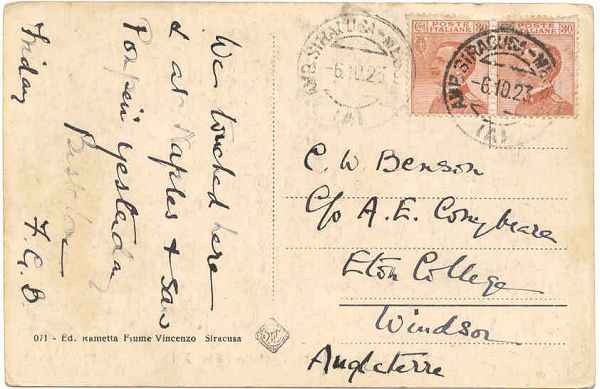 We touched here
& at Naples & saw
Pompeii yesterday
Best love
Friday F.G.B.
POSTE ITALIANE 30
POSTE ITALIANE 30
AMB. SIRACUSA-
-6.10.23
(A)
AMB. SIRACUSA-
-6.10.23
(A)
C. W. Benson
c/o A. E. Conybeare
Eton College
Windsor
Angleterre
071 - Ed. Rametta Fiume Vincenzo Siracusa